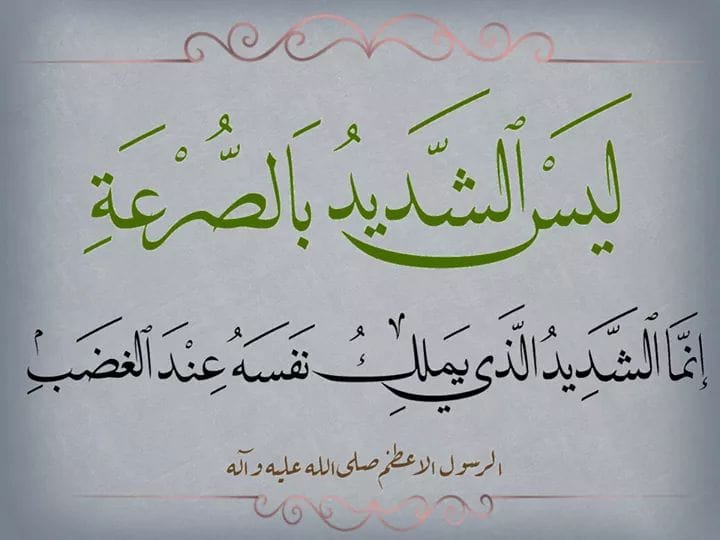 لَيَسْ ٱلشَّدِيدُ بَالصُّرْعَةِ
إِنَّمَا ٱلشَّدِيدُ الَّذِي يَمَلِكُ نَفَسَهُ عِنْدَ ٱلغَضَبِ
الرسول الاعظم صلى الله عليه وآله